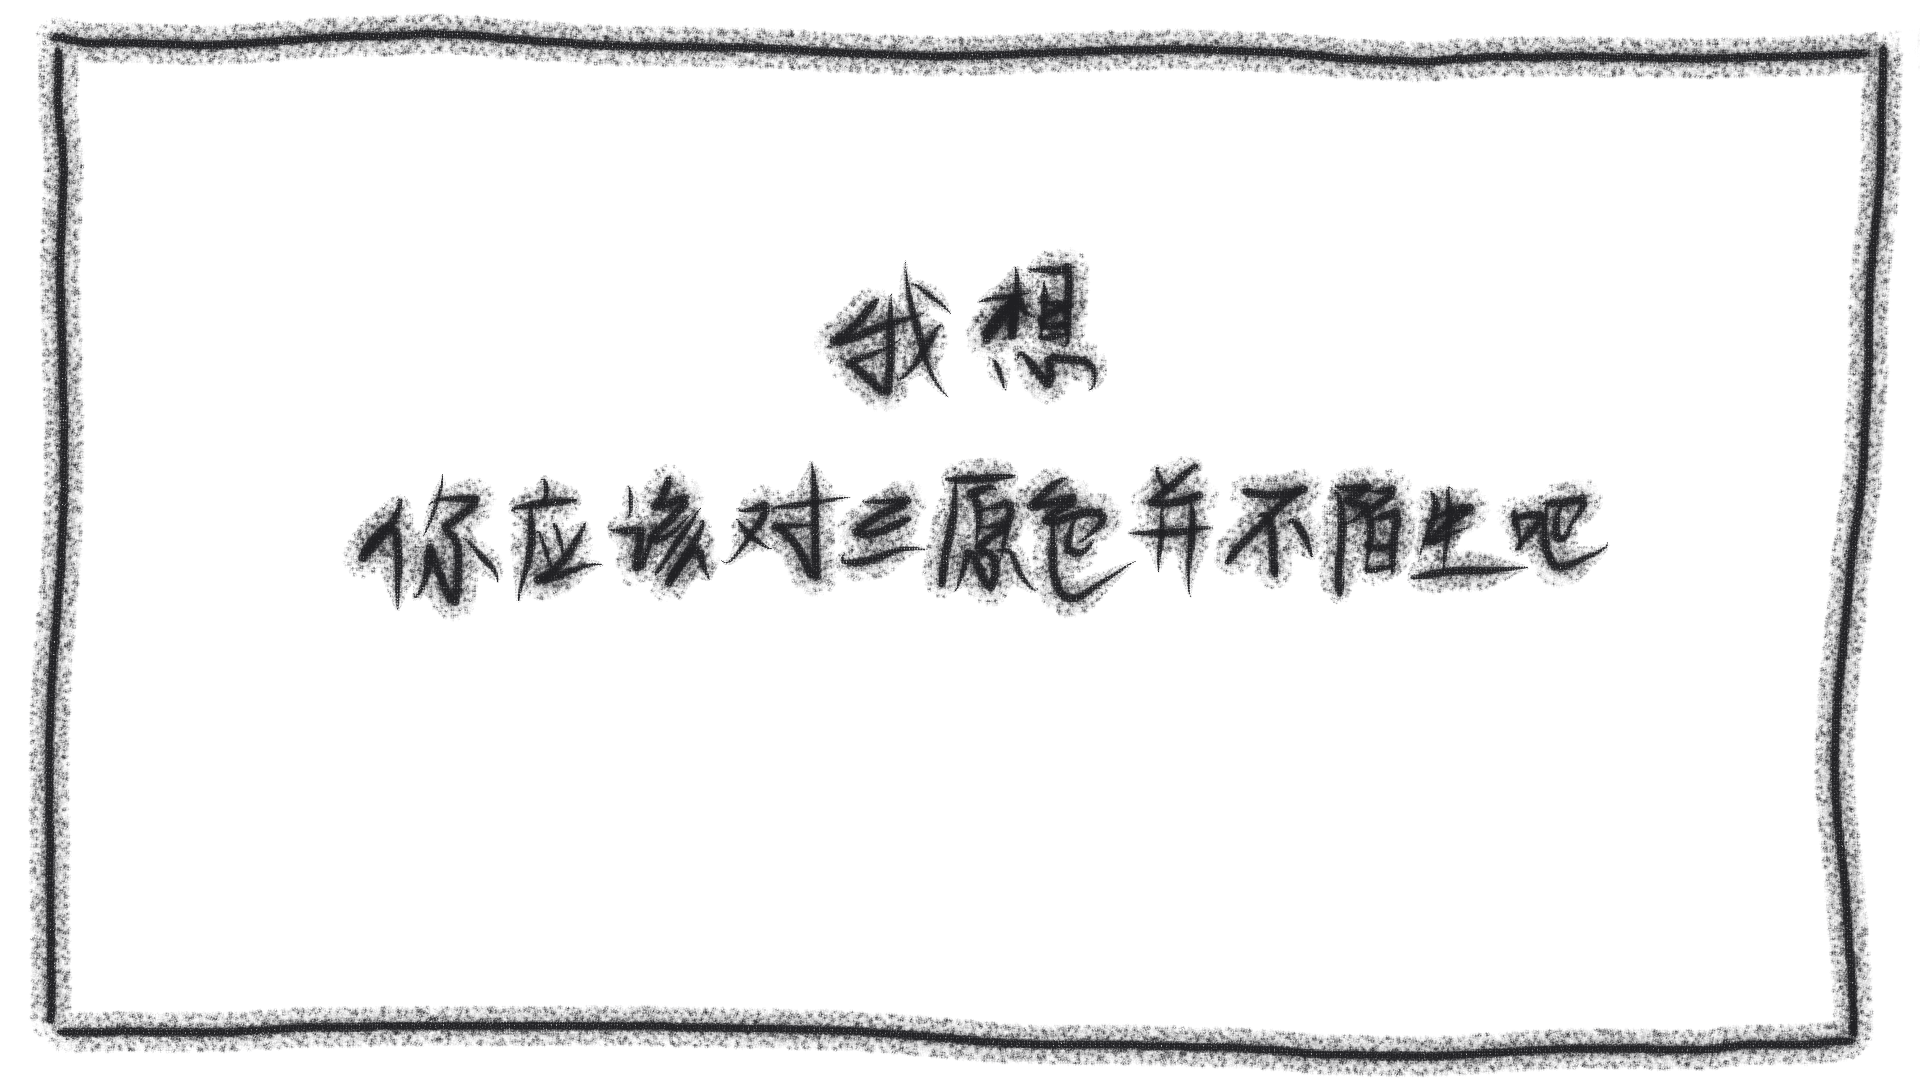 我想
你应该对三原色并不陌生吧